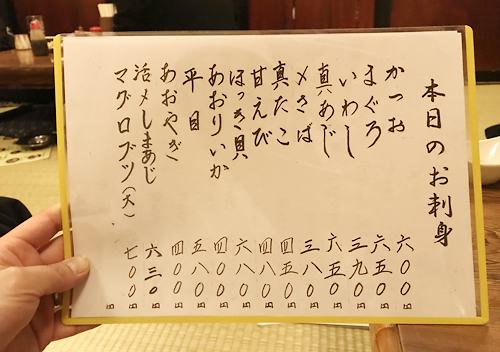 本日のお刺身
かつお 六〇〇円
まぐろ 六五〇円
いわし 三九〇円
真あじ 六五〇円
〆さば 三八〇円
真たこ 四五〇円
甘えび 四八〇円
ほっき貝 六八〇円
あおりいか 四〇〇円
平目 五八〇円
あおやぎ 四〇〇円
活〆しまあじ 六三〇円
マグロブツ(天) 七〇〇円